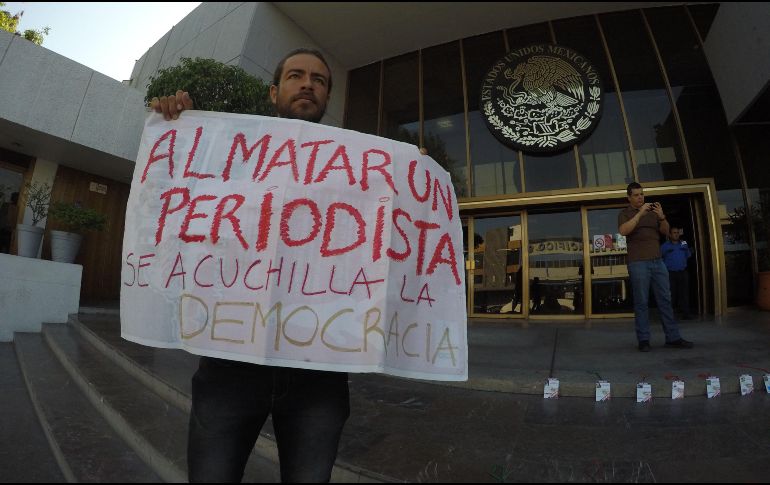 ESTADOS UNIDOS MEXICANOS
AL MATAR UN
PERIODISTA
SE ACUCHILLA LA
DEMOCRACIA